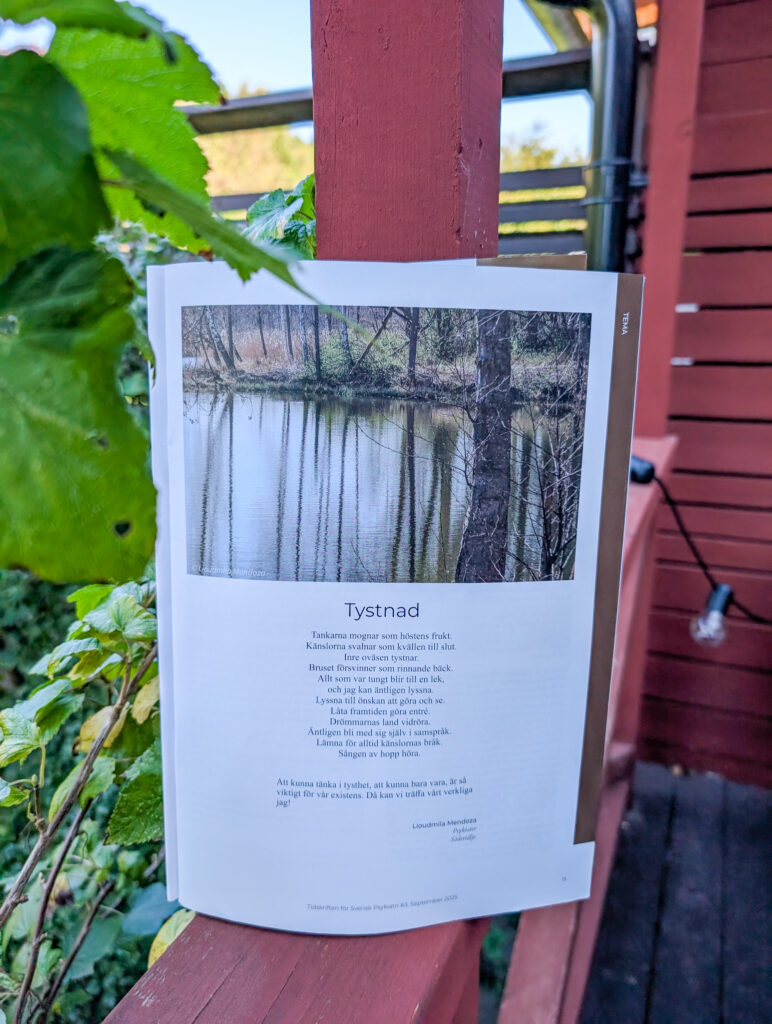 TEMA
© Lioudmila Mendoza
Tystnad
Tankarna mognar som höstens frukt.
Känslorna svalnar som kvällen till slut.
Inre oväsen tystnar.
Bruset försvinner som rinnande bäck.
Allt som var tungt blir till en lek,
och jag kan äntligen lyssna.
Lyssna till önskan att göra och se.
Låta framtiden göra entré.
Drömmarnas land vidröra.
Äntligen bli med sig själv i samspråk.
Lämna för alltid känslornas bråk.
Sången av hopp höra.
Att kunna tänka i tysthet, att kunna bara vara, är så
viktigt för vår existens. Då kan vi träffa vårt verkliga
jag!
Lioudmila Mendoza
Psykiater
Södertälje
Tidskriften för Svensk Psykiatri #3, September 2025